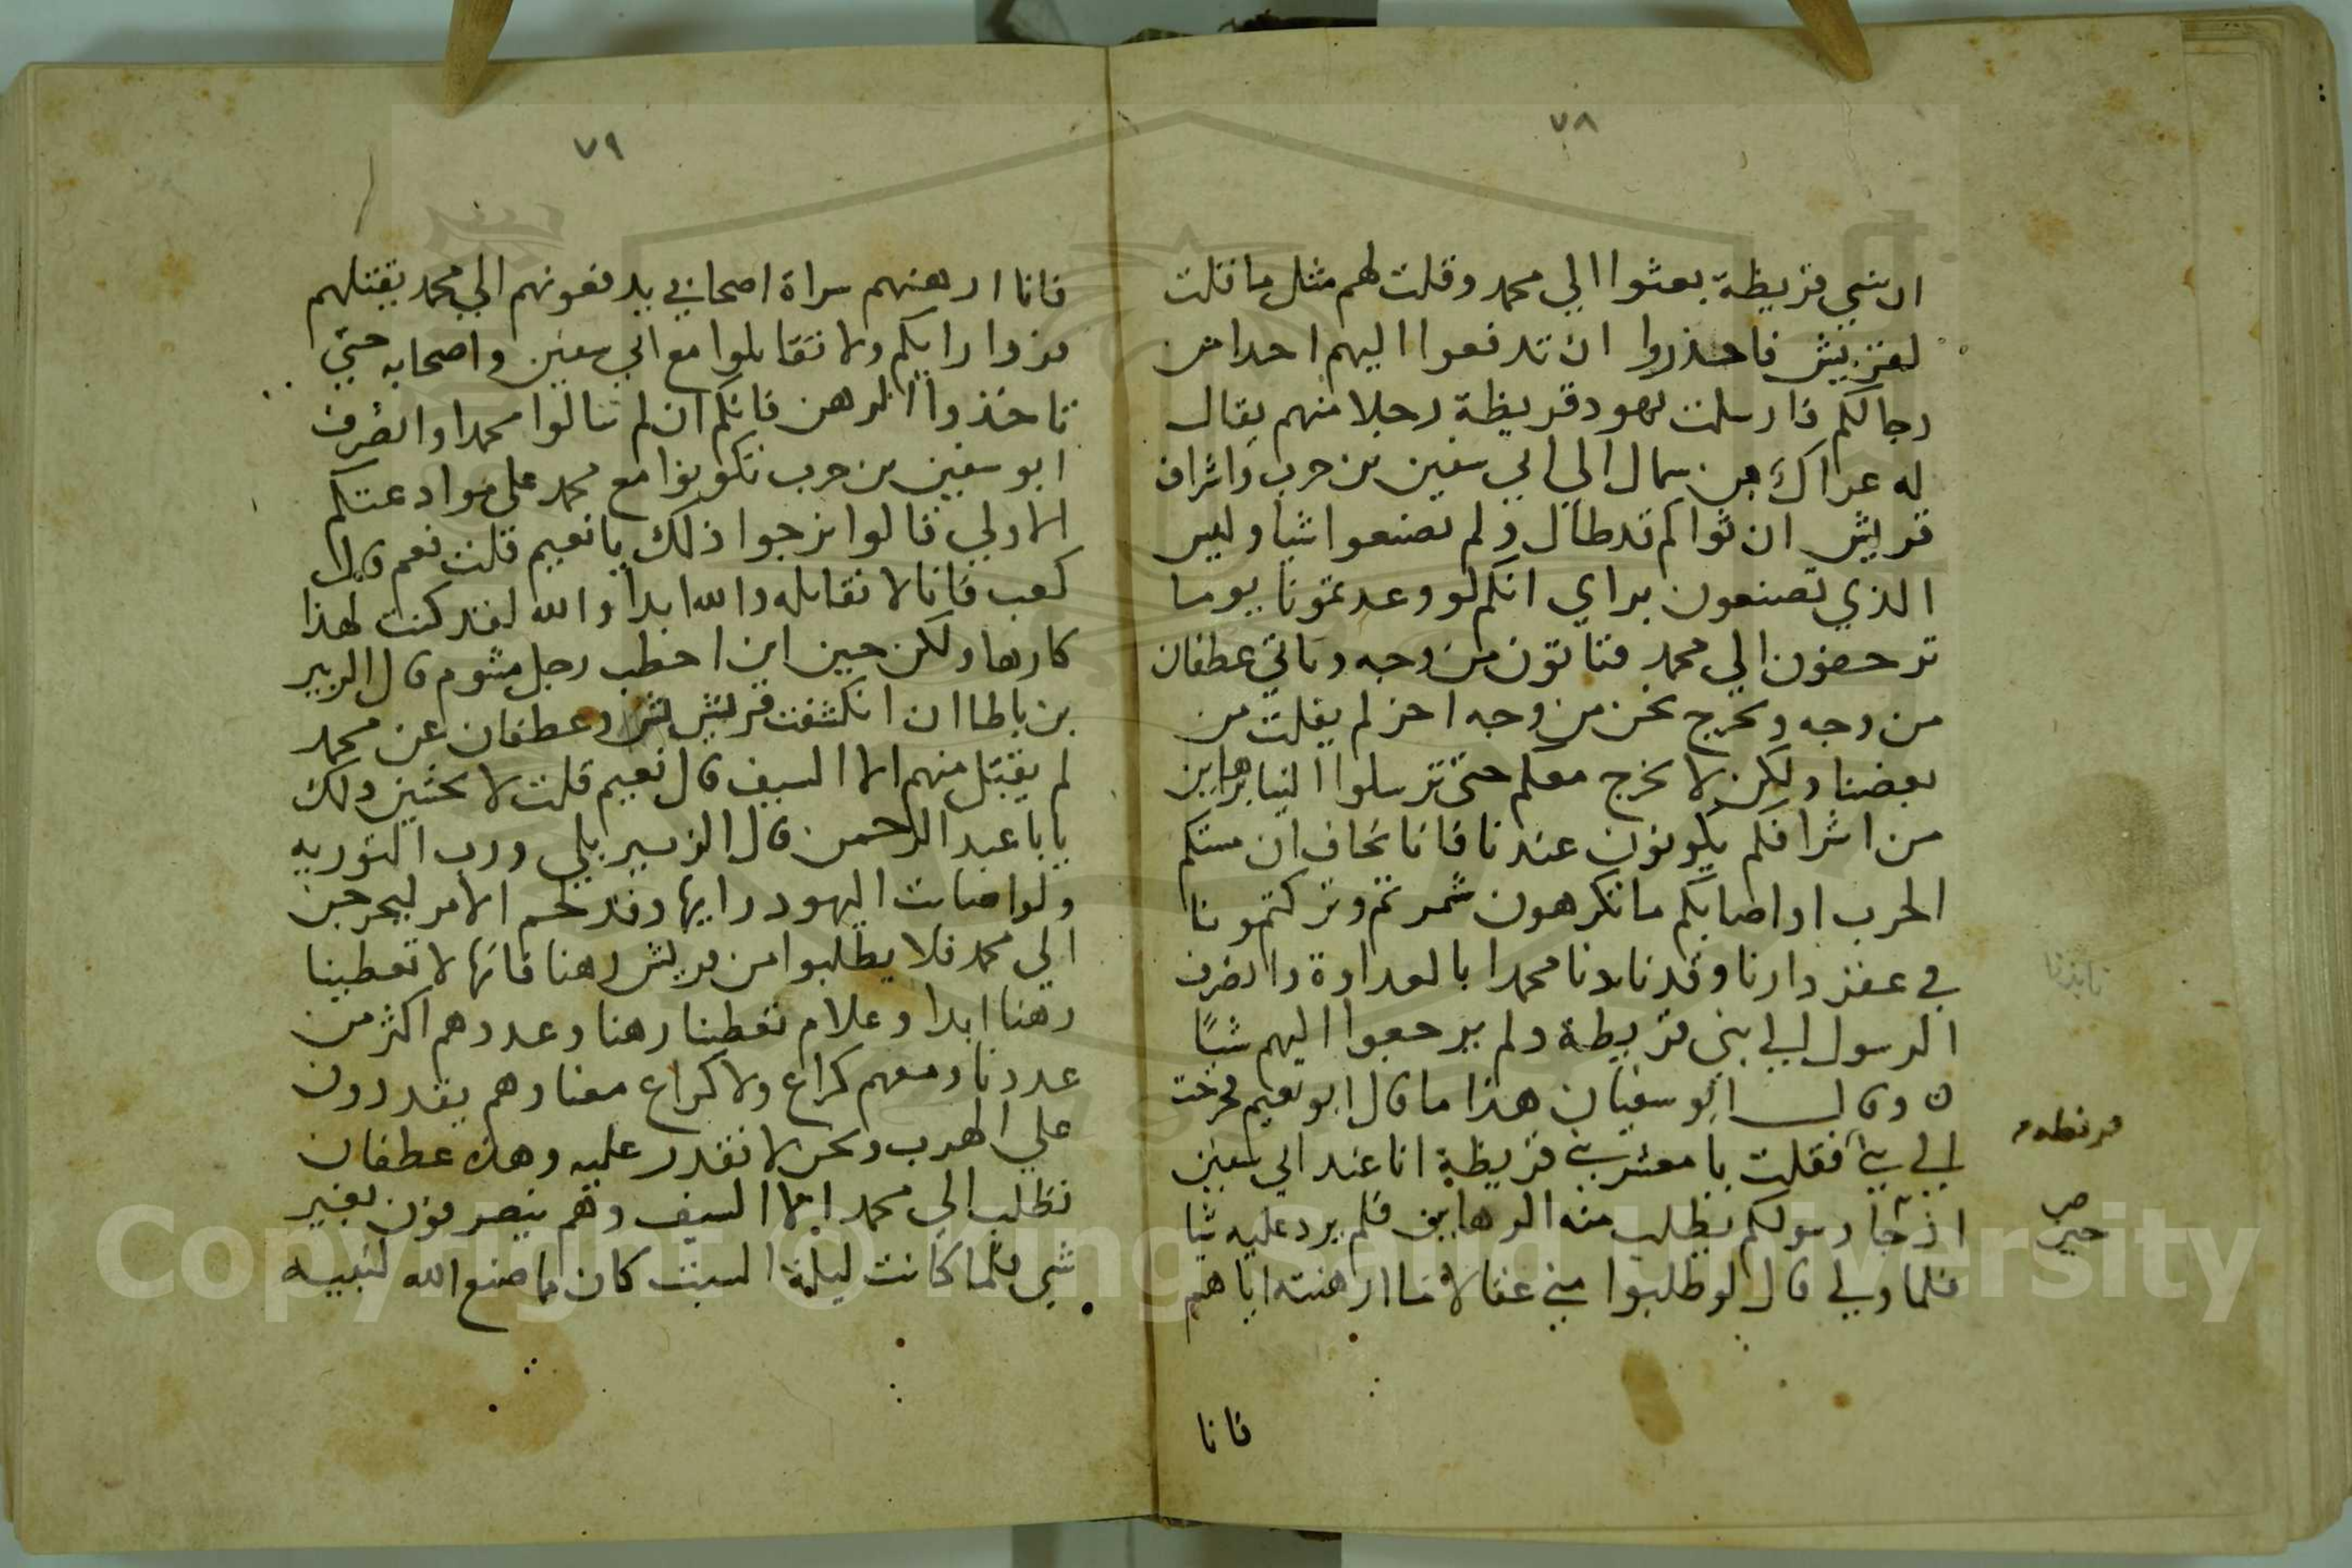 ٧٨
ان بني قريظة بعثوا الي محمد وقلت لهم مثل ما قلت
لقريش فاحذروا ان تدفعوا اليهم احدا من
رجالكم فارسلت يهود قريظة رجلا منهم يقال
له عزاك بن سمال الي ابي سفين بن حرب واشراف
قريش ان ثواكم قد طال ولم تصنعوا شيا وليس
الذي تصنعون براي انكم لو وعدتمونا يوما
تزحفون الي محمد فتاتون من وجه وتاتي غطفان
من وجه ونخرج نحن من وجه اخر لم يفلت من
بعضنا ولكن لا نخرج معكم حتي ترسلوا الينا برهاين
من اشرافكم يكونون عندنا فانا نخاف ان مستكم
الحرب او اصابكم ما تكرهون شمرتم وتركتمونا
في عقر دارنا وقد نابدنا محمدا بالعداوة وانصرف
الرسول الي بني قريظة ولم يرجعوا اليهم شيًا
ه وقال ابو سفيان هذا ما قال ابو نعيم فخرجت
الي بني فقلت يا معشر بني قريظة انا عند ابي سفين
قريظة
اذ جا رسولكم يطلب منه الرهاين فلم يرد عليه شيا
حين
فلما ولي قال لو طلبوا مني عناقا ما ارهنته اياهم
فانا
٧٩
فانا ارهنهم سراة اصحابي يدفعونهم الي محمد يقتلهم
فردوا رايكم ولا تقاتلوا مع ابي سفين واصحابه حتي
تاخذوا الرهن فانكم ان لم تنالوا محمدا وانصرف
ابو سفين بن حرب تكونوا مع محمد علي موادعتكم
الاولي قالوا نرجوا ذلك يا نعيم قلت نعم قال
كعب فانا لا نقاتله والله ابدا والله لقد كنت لهذا
كارها ولكن حيين ابن اخطب رجل مشوم قال الزبير
بن باطا ان انكشفت قريش وغطفان عن محمد
لم يقبل منهم الا السيف قال نعيم قلت لا تخشين ذلك
يابا عبد الرحمن قال الزبير بلي ورب التورية
ولو اصابت اليهود رايها وقد لحم الامر ليخرجن
الي محمد فلا يطلبوا من قريش رهنا فانها لا تعطينا
رهنا ابدا وعلام تعطينا رهنا وعددهم اكثر من
عددنا ومعهم كراع ولا كراع معنا وهم يقدرون
علي الهرب ونحن لا نقدر عليه وهذه غطفان
تطلب الي محمد الا السيف وهم ينصرفون بغير
شي فلما كانت ليلة السبت كان مما صنع الله لنبيه
Copyright © King Saud University